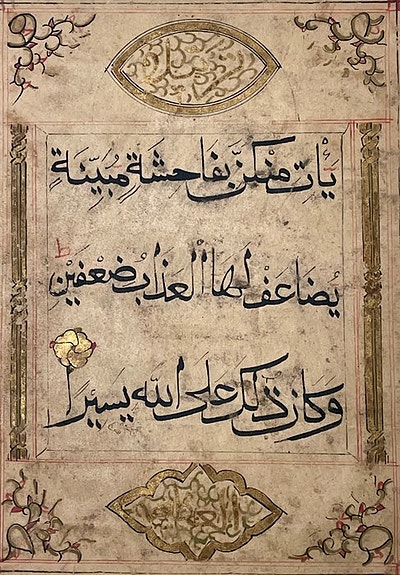 يَأْتِ مِنْكُنَّ بِفَاحِشَةٍ مُبَيِّنَةٍ
يُضَاعَفْ لَهَا الْعَذَابُ ضِعْفَيْنِ ط
وَكَانَ ذَلِكَ عَلَى اللَّهِ يَسِيرًا